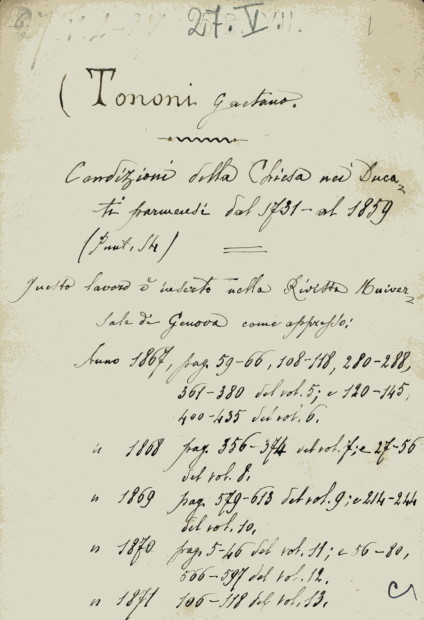 27.V.
( Tononi Gaetano.
Condizioni della Chiesa nei Duca=
ti parmensi dal 1731 - al 1859
(Punt. 14)
Questo lavoro è inserto nella Rivista Univer=
sale di Genova come appresso:
Anno 1867, pag. 59-66, 108-118, 280-288,
361-380 del vol. 5; e 120-145,
400-435 del vol. 6.
" 1868 pag. 356-374 del vol. 7; e 27-56
del vol. 8.
" 1869 pag. 579-613 del vol. 9; e 214-244
del vol. 10.
" 1870 pag. 5-46 del vol. 11; e 56-80,
566-597 del vol. 12.
" 1871 106-118 del vol. 13.